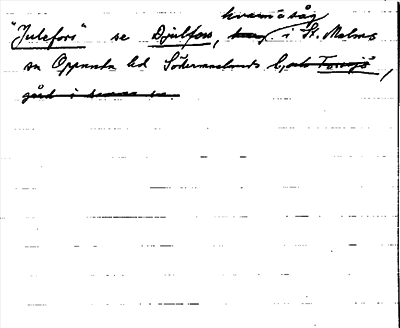 kvarn o såg
"Julefors" se Djulfors, i St. Malms
sn Oppunda hd Södermanlands l, och Forssjö,
gård i samma sn.